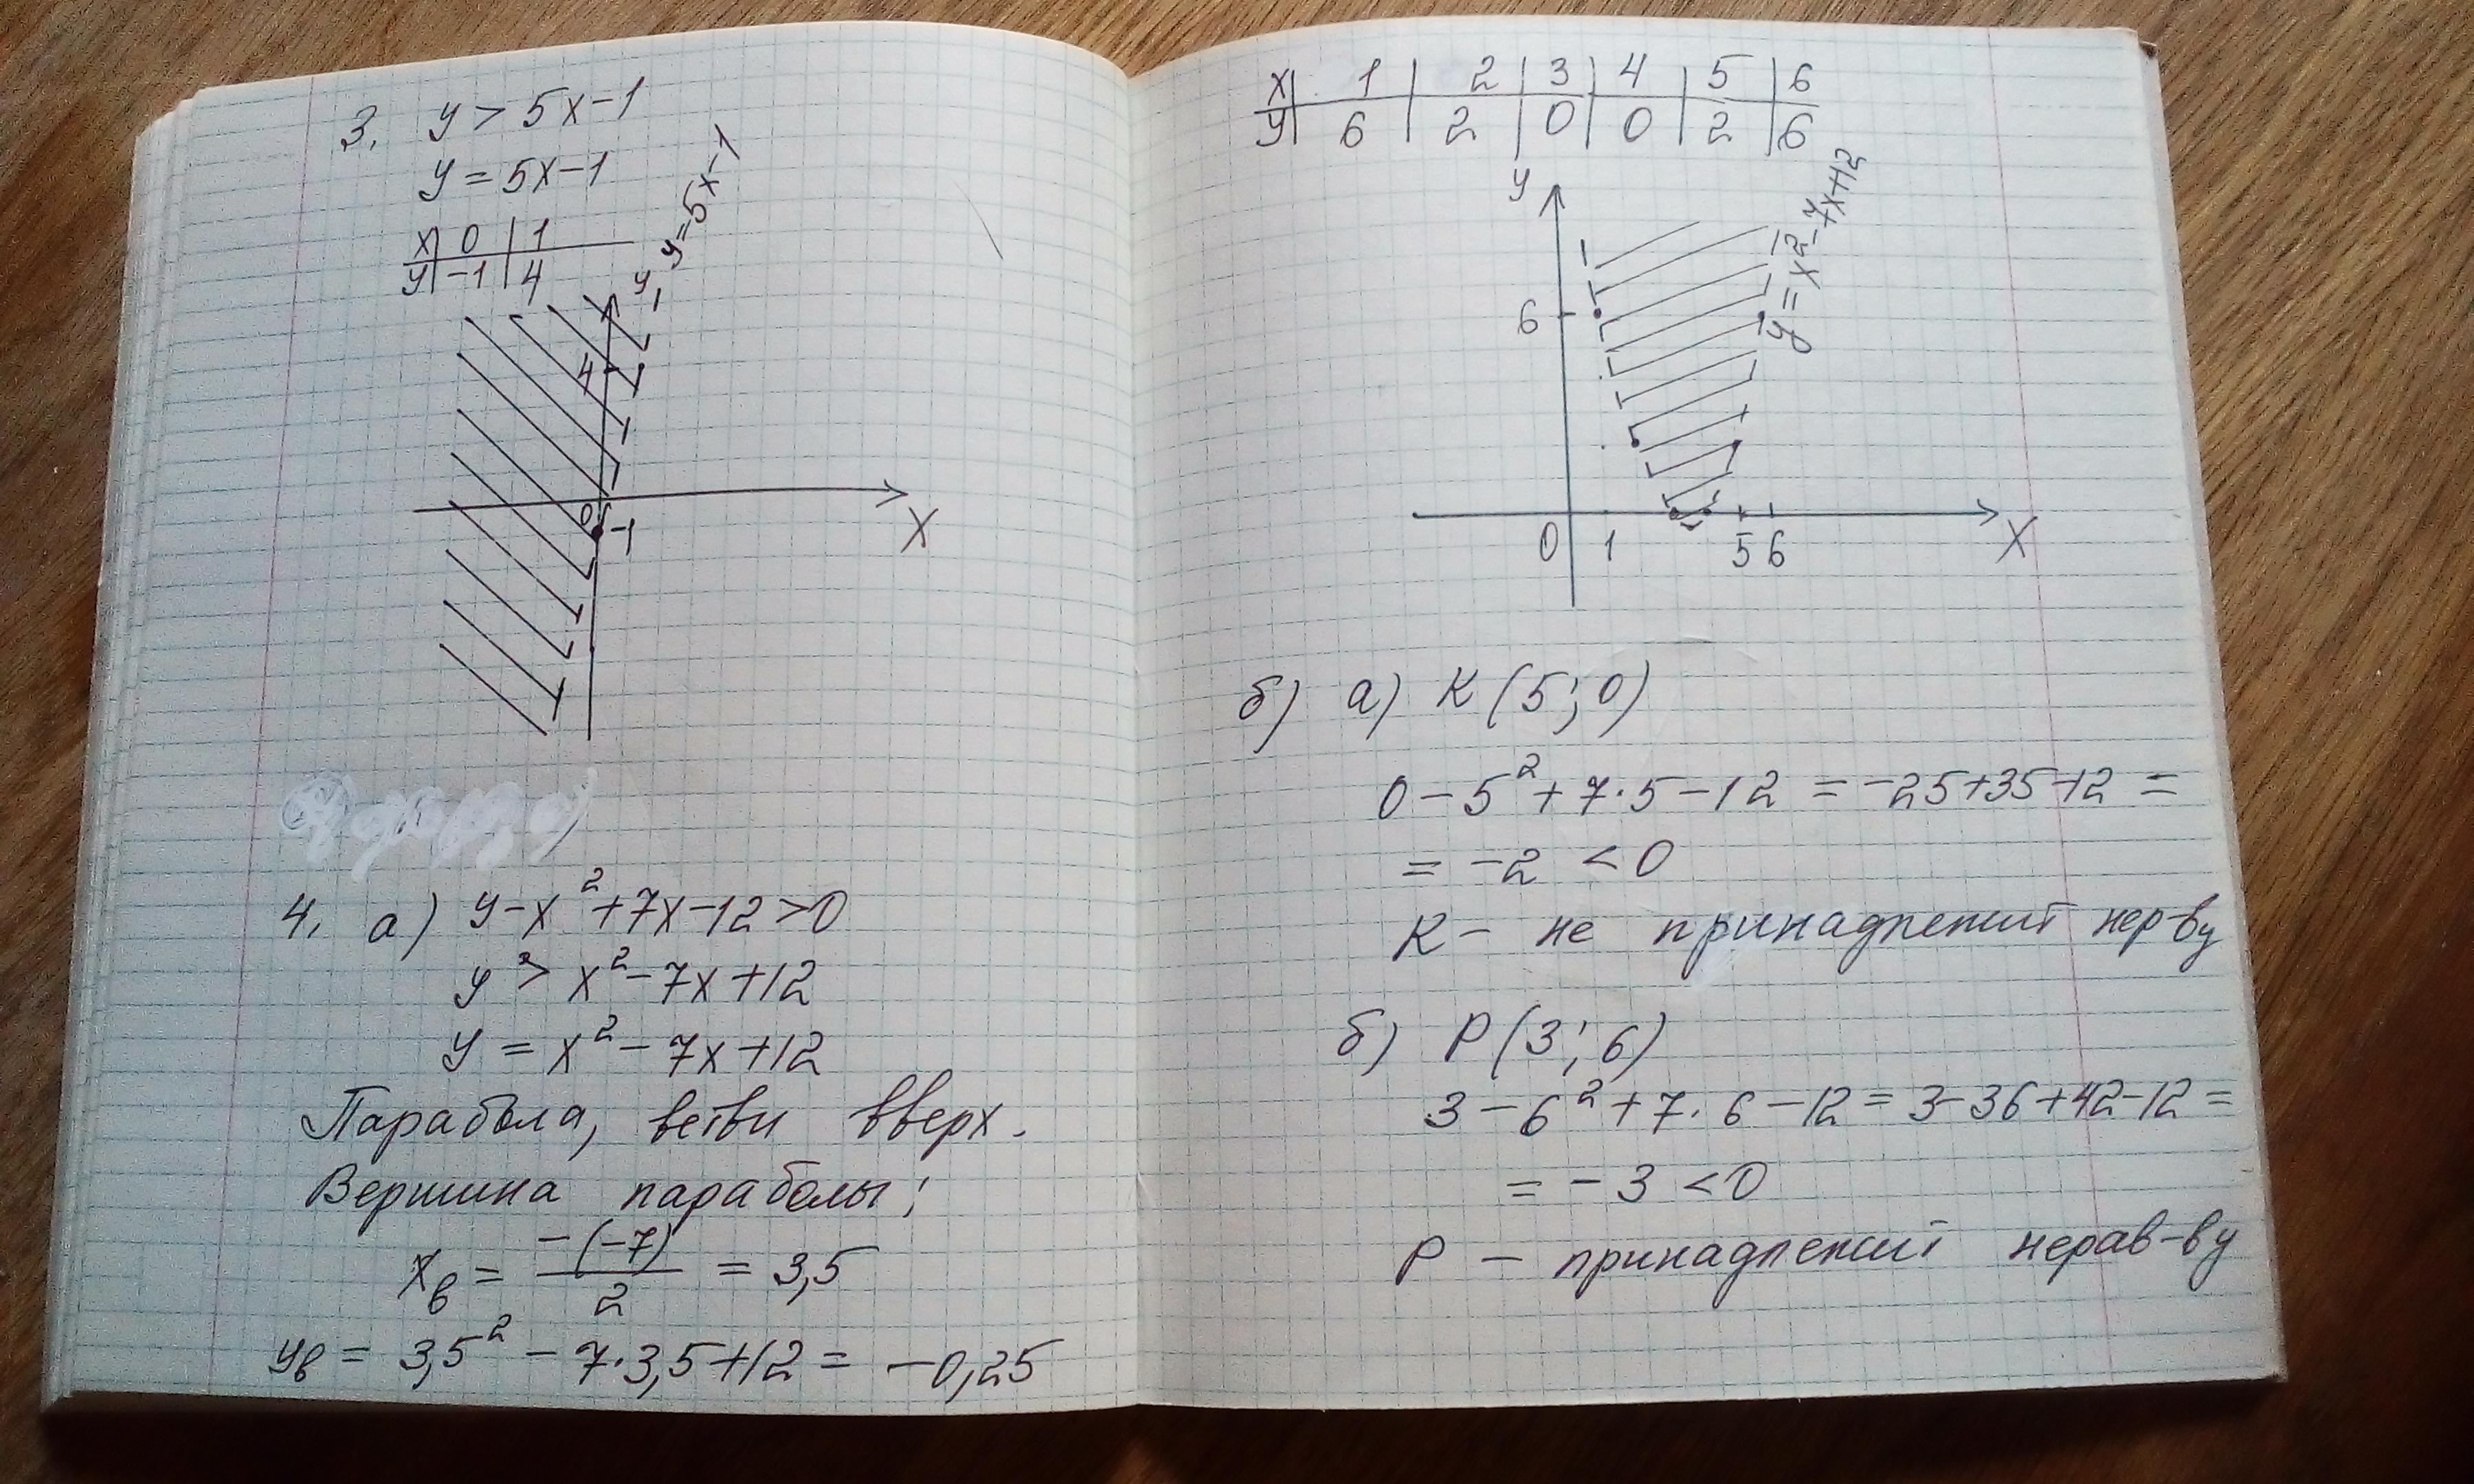 3. y > 5x-1
y = 5x-1
x | 0 | 1
y | -1 | 4
y = 5x-1
y
4
0
-1
X
4. а) y-x²+7x-12>0
y > x²-7x+12
y = x²-7x+12
Парабола, ветви вверх.
Вершина параболы:
xв = -(-7)/2 = 3,5
yв = 3,5² - 7·3,5+12 = -0,25
x | 1 | 2 | 3 | 4 | 5 | 6
y | 6 | 2 | 0 | 0 | 2 | 6
y
y = x²-7x+12
6
0 1 5 6 X
б) а) К (5; 0)
0-5²+7·5-12 = -25+35-12 =
= -2 < 0
К - не принадлежит нер-ву
б) Р (3; 6)
3-6²+7·6-12 = 3-36+42-12 =
= -3 < 0
Р - принадлежит нерав-ву